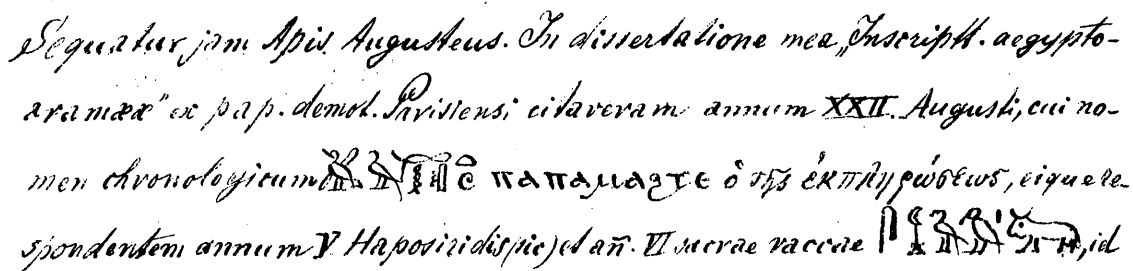 Sequatur jam Apis Augusteus. In dissertatione mea „Inscriptt. aegypto-
aramææ" ex pap. demot. Parisiensi citaveram annum XXII Augusti, cui no-
men chronologicum ὁ τῆς ἐκπληρώσεως, eique re-
spondentem annum V Haposiridis (sic) et añ. VI sacrae vaccae , id